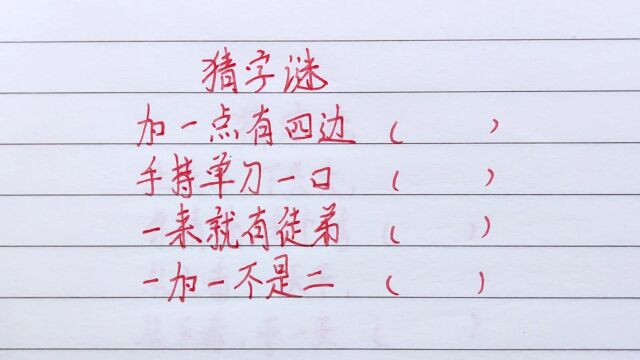 猜字谜
加一点有四边 ( )
手持单刀一口 ( )
一来就有徒弟 ( )
一加一不是二 ( )